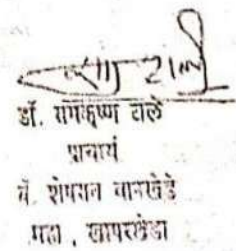 डॉ. रामकृष्ण टाले
प्राचार्य
शेषराव वानखेडे
महा. खापरखेडा